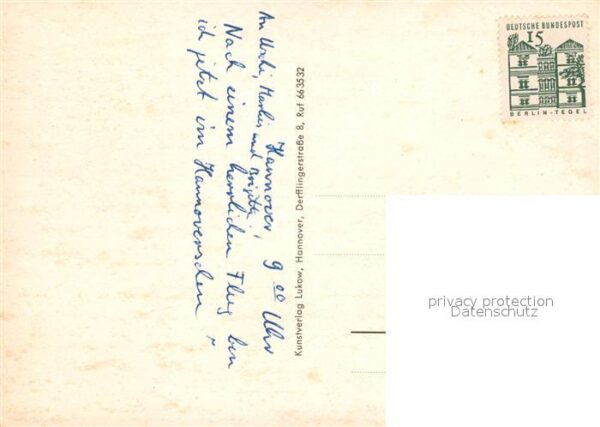 Hannover, 9 00 Uhr
An Uschi, Marlies und Brigitte!
Nach einem herrlichen Flug bin
ich jetzt im Hannoverschen
Kunstverlag Lukow, Hannover, Derfflingerstraße 8, Ruf 663532
DEUTSCHE BUNDESPOST
15
BERLIN-TEGEL
privacy protection
Datenschutz